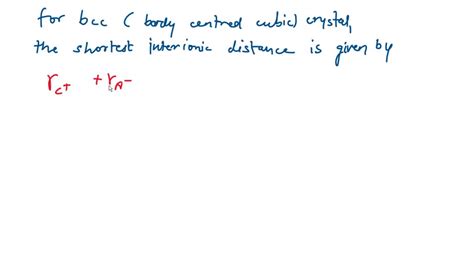 for bcc ( body centred cubic) crystal,
the shortest interionic distance is given by
r_{C+} + r_{A-}